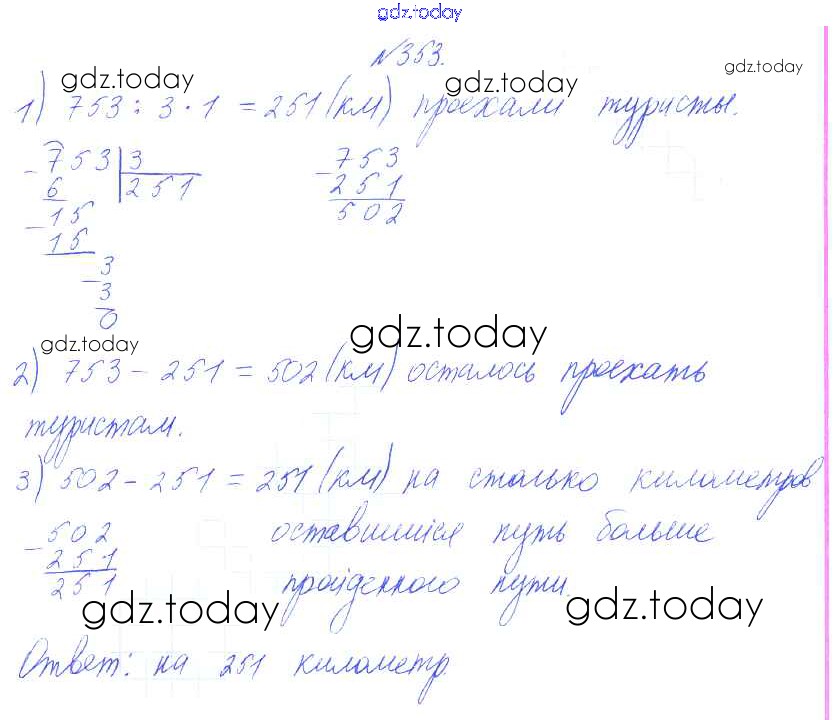 gdz.today
№353.
gdz.today gdz.today gdz.today
1) 753 : 3 · 1 = 251 (км) проехали туристы.
- 753 | 3 - 753
6 251 251
- 15 502
15
- 3
3
0
gdz.today gdz.today
2) 753 - 251 = 502 (км) осталось проехать
туристам.
3) 502 - 251 = 251 (км) на столько километров
- 502 оставшийся путь больше
251
251 пройденного пути.
gdz.today gdz.today
Ответ: на 251 километр.